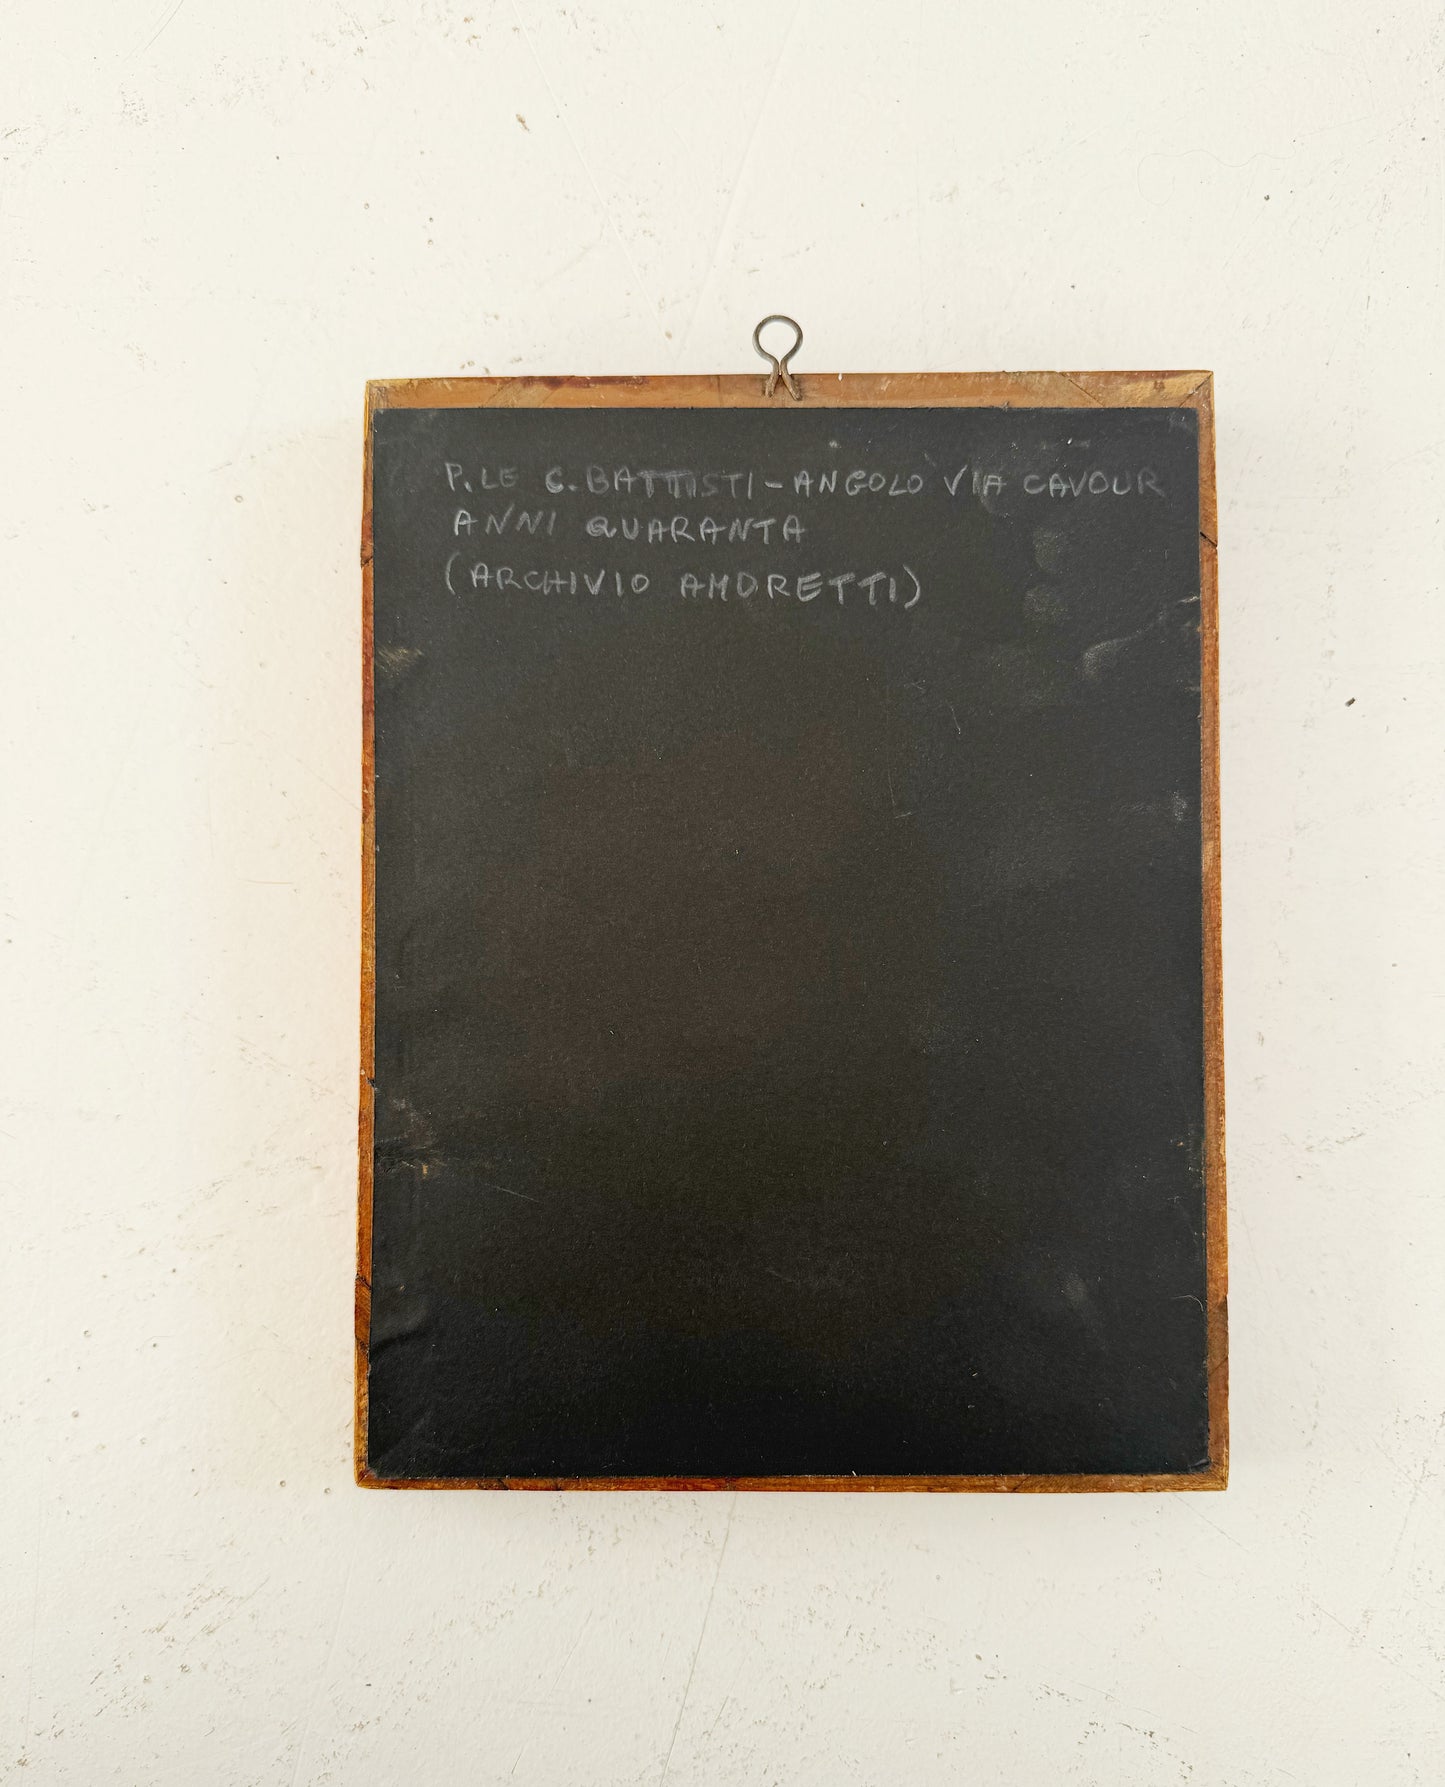 P.LE C. BATTISTI - ANGOLO VIA CAVOUR
ANNI QUARANTA
(ARCHIVIO AMORETTI)